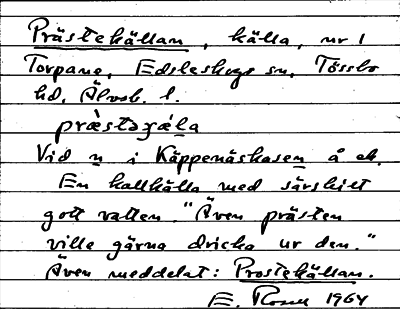 Prästekällan, källa, nr 1
Torpane, Edsleskogs sn, Tössbo
hd, Älvsb. l.
præ̀stəçǽla
Vid n i Käppenäskasen å ek.
En kallkälla med särskilt
gott vatten. "Även prästen
ville gärna dricka ur den."
Även meddelat: Prostekällan.
E. 1964